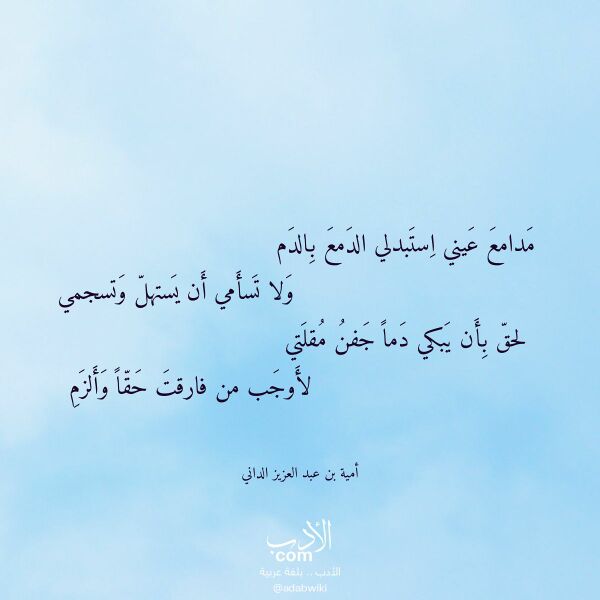 مَدامعَ عَيني اِستَبدلي الدَمعَ بِالدَم
وَلا تَسأَمي أَن يَستهلّ وَتسجمي
لحقّ بِأَن يَبكي دَماً جَفنُ مُقلَتي
لأَوجَب من فارقتَ حَقّاً وَأَلزَمِ
أمية بن عبد العزيز الداني
الأدب
com
الأدب .. بلغة عربية
@adabwiki